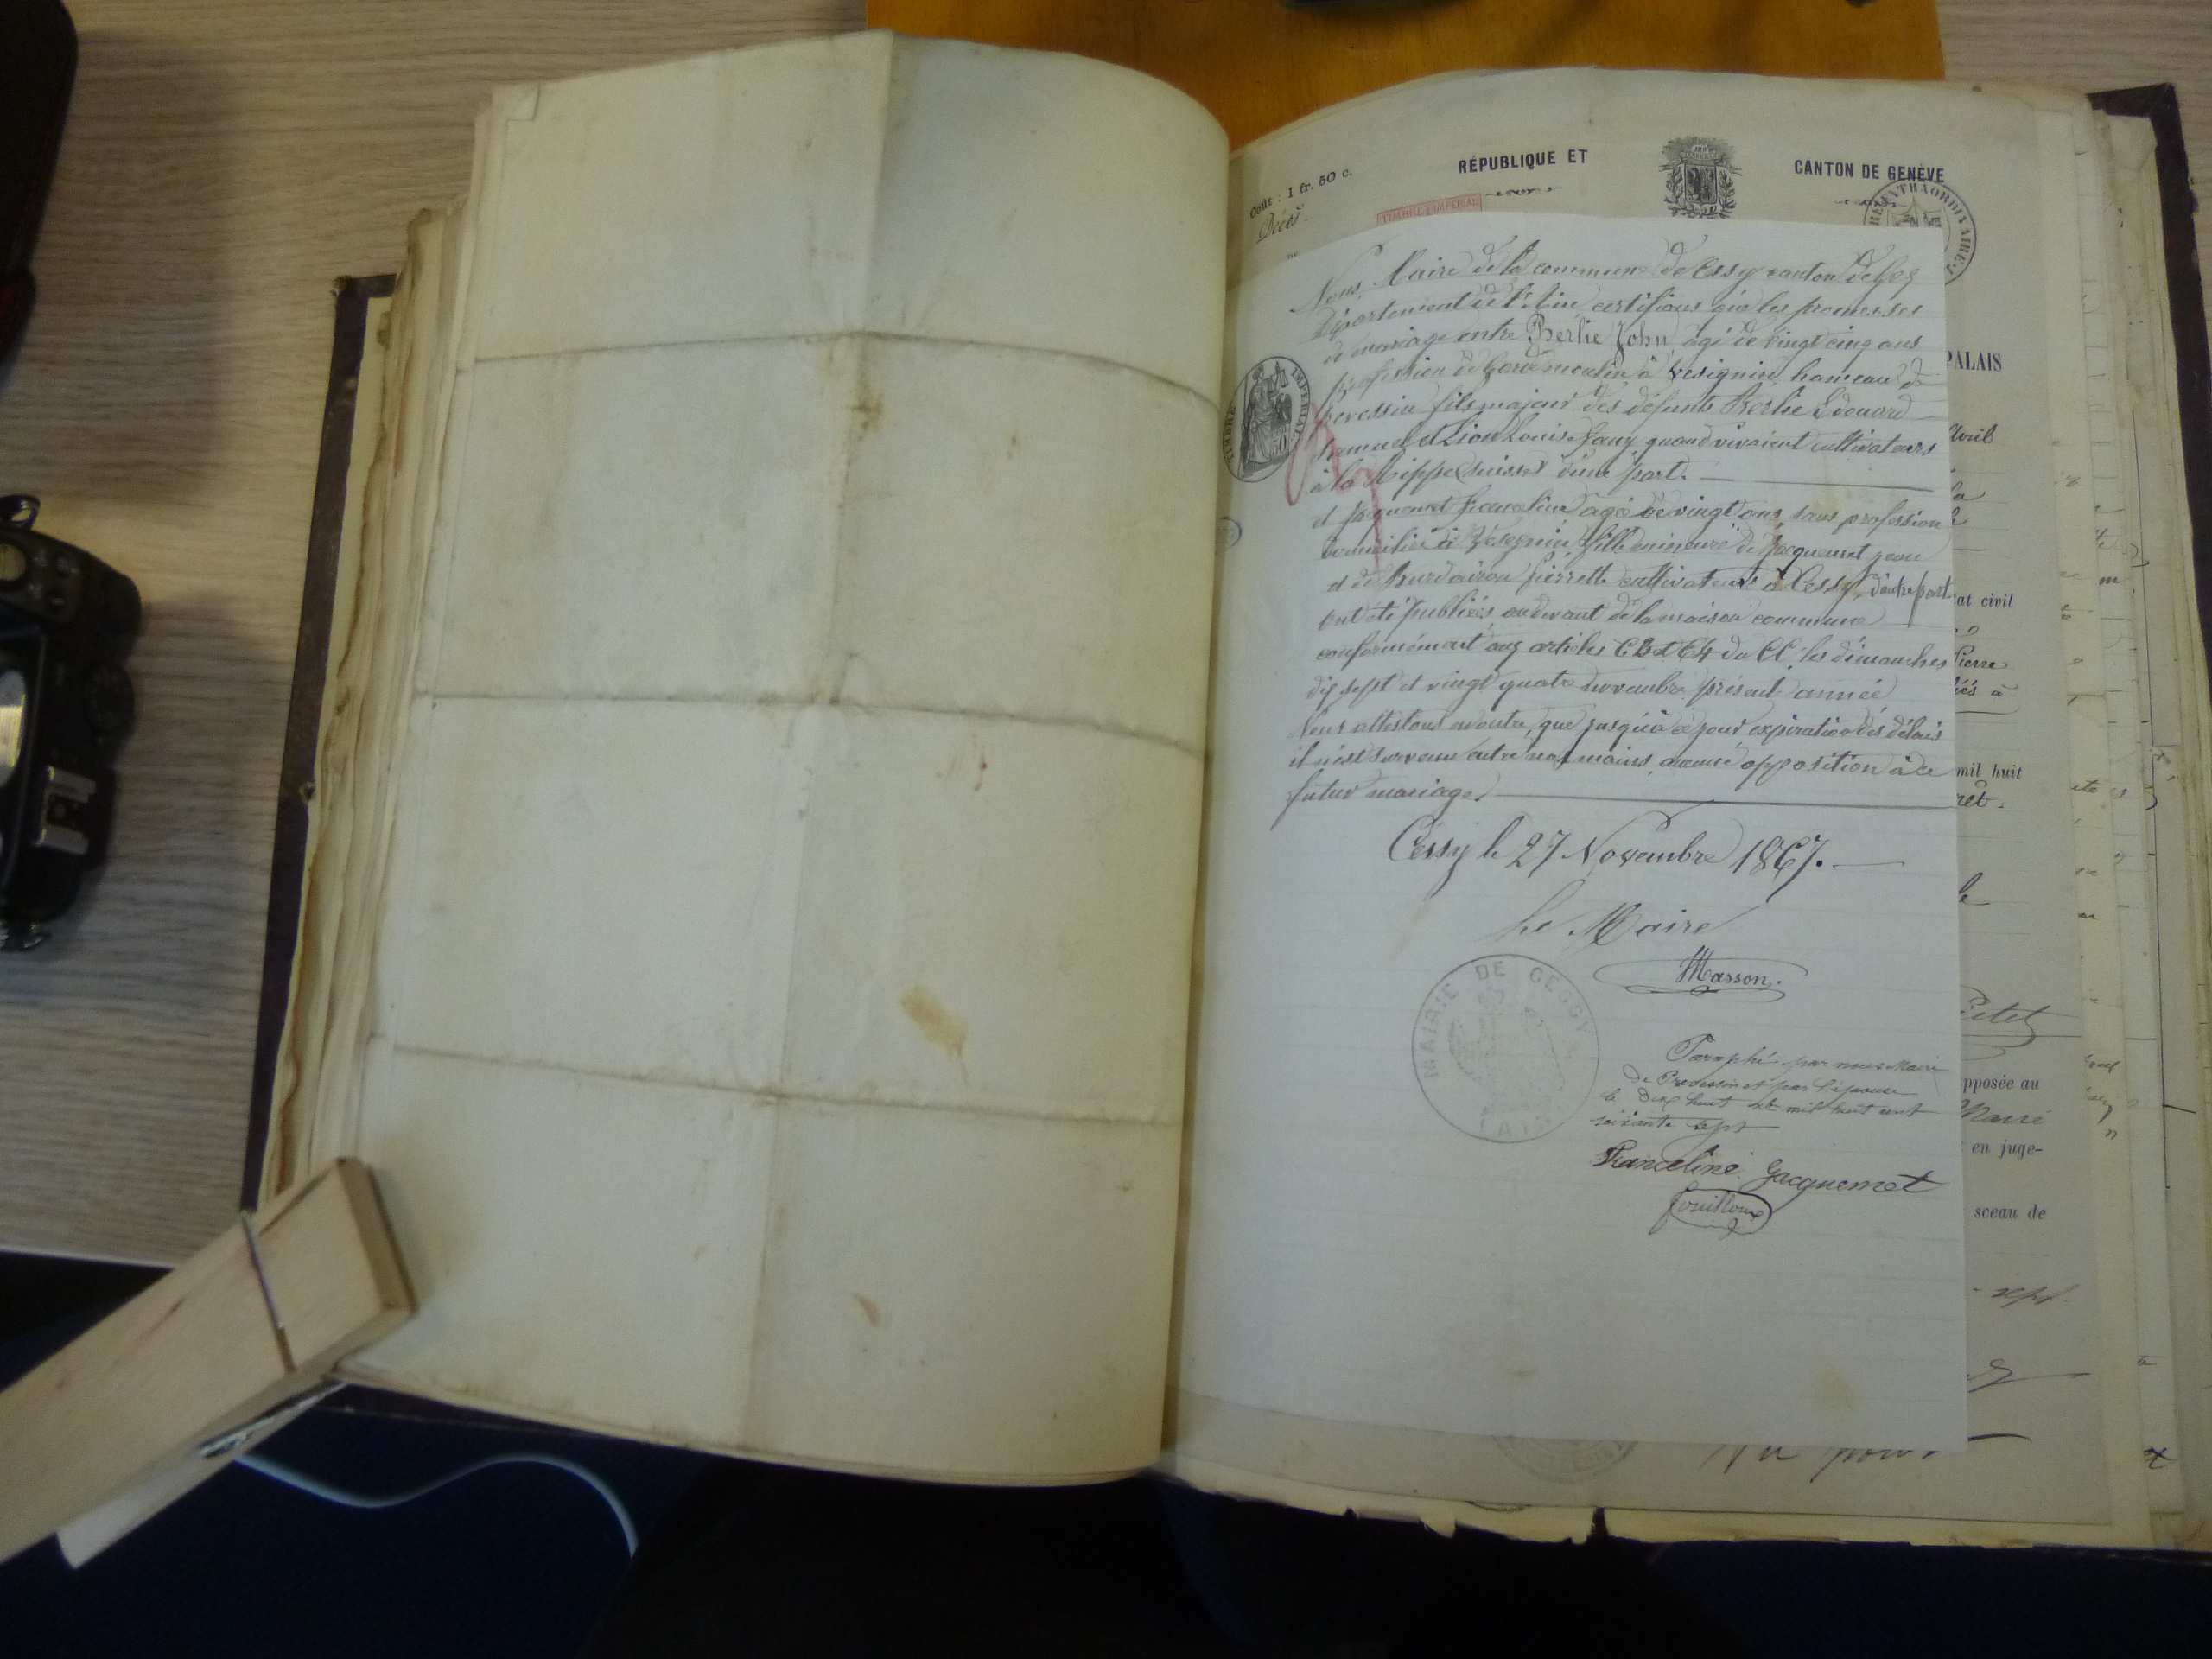 Coût : 1 fr. 50 c.
RÉPUBLIQUE ET CANTON DE GENÈVE
Décès
TIMBRE IMPÉRIAL
EXTRAORDINAIRE
PALAIS
Nous, Maire de la commune de Cessy canton de Gex
Département de l'Ain, certifions que les promesses
de mariage entre Berlie John, agé de vingt cinq ans
profession de Garde moulin à Vesegnin, hameau de
Prevessin fils majeur des défunts Berlie Edouard
Samuel et Lion Louise Fany quand vivaient cultivateurs
à la Rippe (suisse) d'une part.
et Jacquemet Franceline agée de vingt ans, sans profession
domiciliée à Vésegnin, fille mineure de Jacquemet jean
et de Pierrette cultivateurs à Cessy, d'autre part
ont été publiées, au devant de la maison commune
conformément aux articles 63 et 64 du CC, les dimanches
dix sept et vingt quatre novembre présente année
Nous attestons en outre, que jusqu'à ce jour expiration des délais
il n'est survenu entre nos mains, aucune opposition à ce
futur mariage.
Cessy le 27 Novembre 1867.
Le Maire
Masson.
MAIRIE DE CESSY
(AIN)
TIMBRE IMPÉRIAL
50
Paraphé par nous Maire
de Prevessin et par l'épouse
le dix huit Xbre mil huit cent
soixante sept
Franceline Jacquemet
Fouilloux
Avril
la
état civil
Pierre
mil huit
opposée au
en juge-
sceau de
sept.
Vu pour